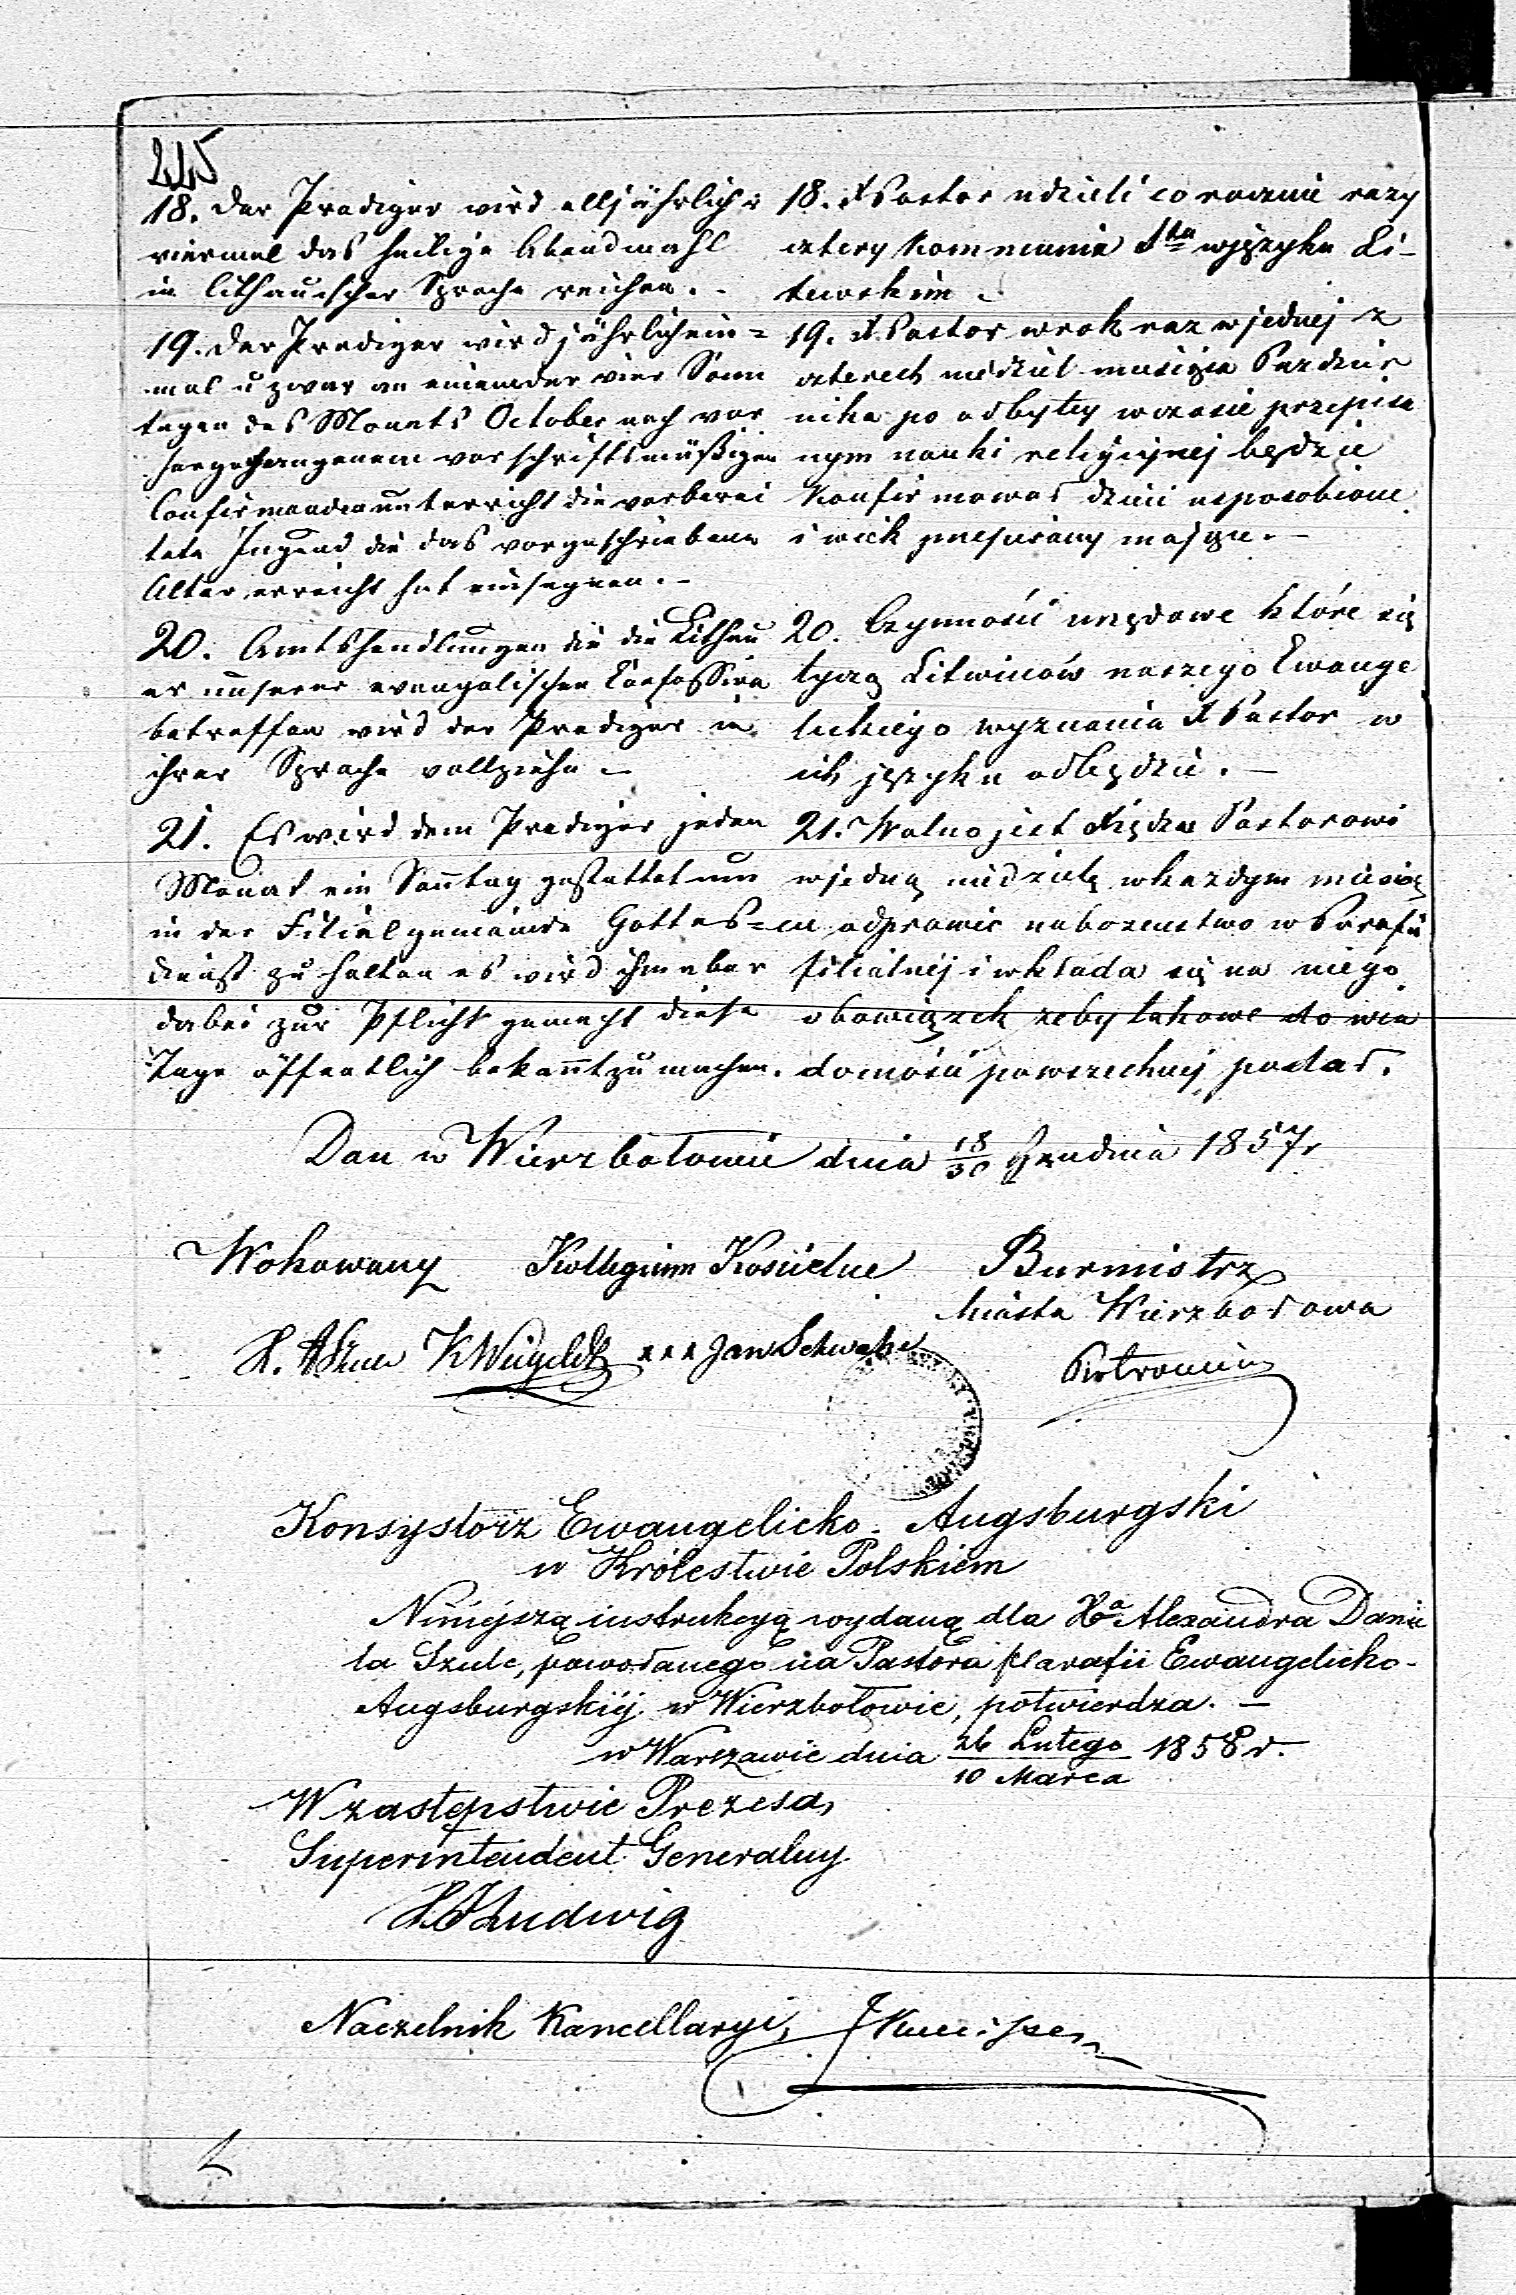 18. Der Prediger wird alljährlich
viermal das heilige Abendmahl
in lithauischer Sprache reichen. -
19. Der Prediger wird jährlich ein=
mal u zwar an einem der vier Sonn
tagen des Monats October nach vor
hergegangenem vorschriftsmäßigen
Confirmandenunterricht die vorberei
tete Jugend die das vorgeschriebene
Alter erreicht hat einsegnen. -
20. Amtshandlungen die die Lithau
er unserer evangelischen Confession
betreffen wird der Prediger in
ihrer Sprache vollziehn -
21. Es wird dem Prediger jeden
Monat ein Sonntag gestattet um
in der Filialgemeinde Gottes=
dienst zu halten es wird ihm aber
dabei zur Pflicht gemacht diese
Tage öffentlich bekannt zu machen.
18. X Pastor udzieli corocznie razy
cztery Kommunia Sta w języku Li-
tewskim -
19. X Pastor w rok raz w jednej z
czterech niedziel miesiąca Pazdzier
nika po odbytej w czasie przepisa
nym nauki religijnej będzie
Konfirmował dzieci usposobione
i wiek przepisany mające. -
20. Czynności urzędowe które się
tyczą Litwinów naszego Ewange
lickiego wyznania X Pastor w
ich języku odbędzie. -
21. Wolno jest Xiędzu Pastorowi
w jedną niedzielę w kazdym miesią
cu odprawić nabozenstwo w Parafii
filialnéj i wkłada się na niego
obowiązek zeby takowe do wia
domości powszechnej podał.
Dan w Wierzbołowie dnia 18/30 Grudnia 1857r
Wokowany Kollegium Kościelne Burmistrz
Miasta Wierzbołowa
K Weigeldt xxx Jan Schwabe
Konsystorz Ewangelicko-Augsburgski
w Królestwie Polskiem
Niniejszą instrukcyą wydaną dla Xa Alexandra Danie
la Szulc, powołanego na Pastora parafii Ewangelicko-
Augsburgskiéj w Wierzbołowie, potwierdza. -
w Warszawie dnia 26 Lutego/10 Marca 1858 r.
W zastępstwie Prezesa,
Superintendent Generalny
Ludwig
Naczelnik Kancellaryi,